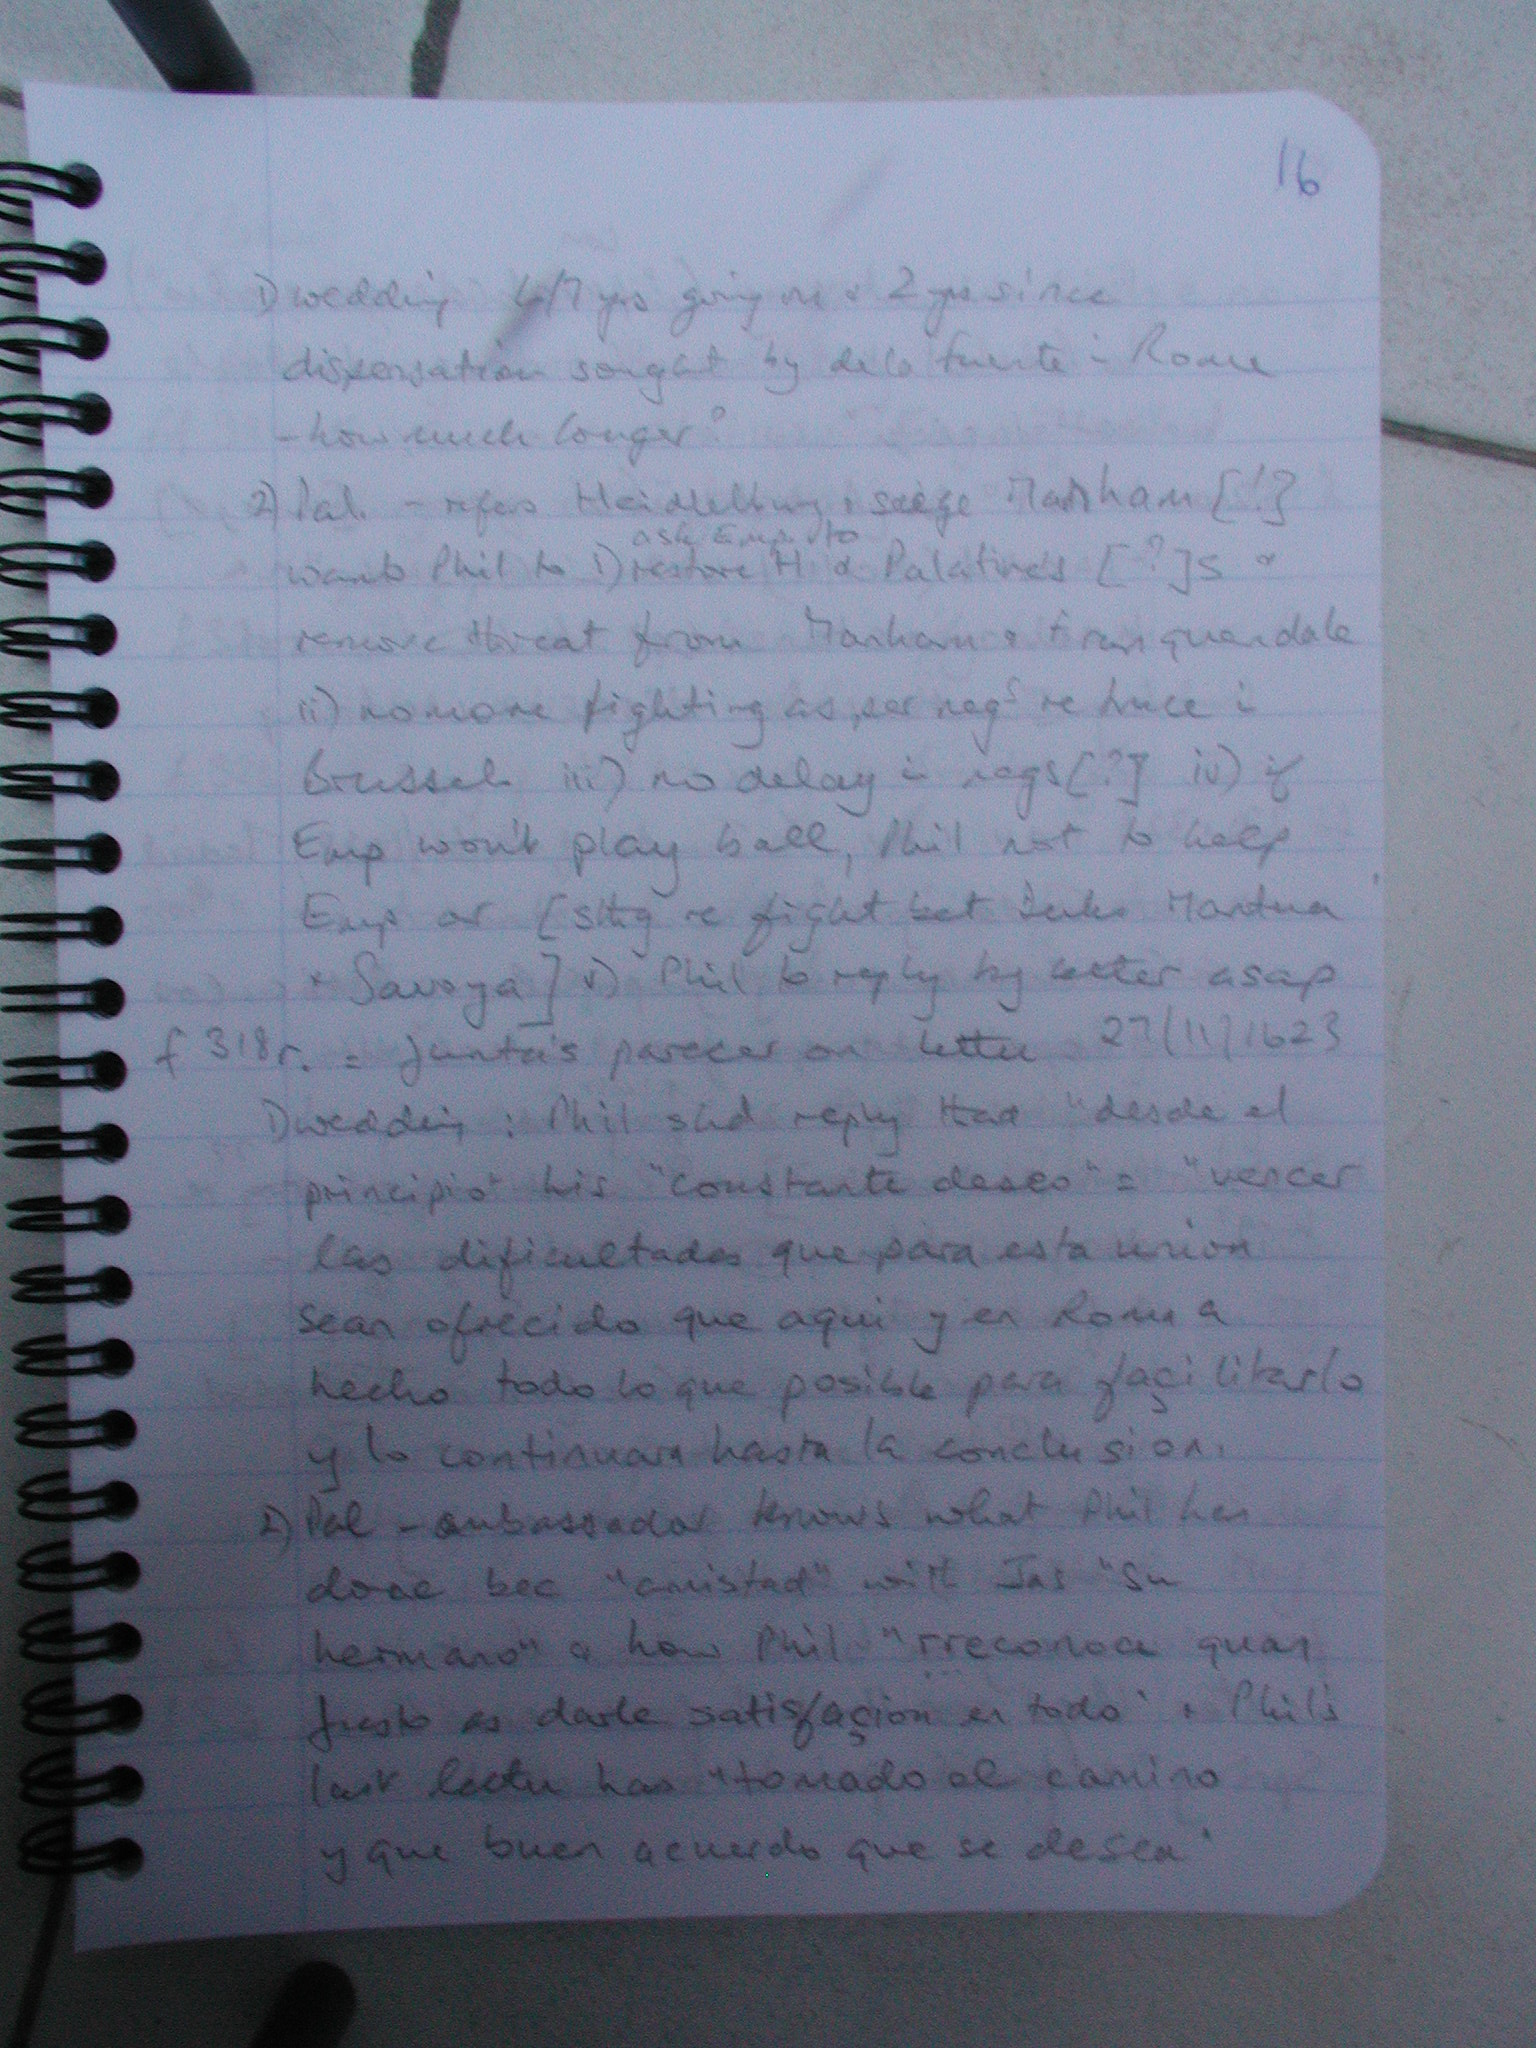 16
1) wedding 6/7 yrs going on & 2 yrs since
dispensation sought by de la fuente in Rome
- how much longer?
2) Pal. - refers Heidelburg, siege Manham [!?]
ask Emp. to
wants Phil to i) restore H & Palatine's [?]s &
remove threat from Manham & franquendale
ii) no more fighting as per negs re truce in
Brussels iii) no delay in negs [?] iv) if
Emp won't play ball, Phil not to help
Emp or [sthg re fight bet Duke Mantua
& Savoya] v) Phil to reply by letter asap
f 318r. = Junta's parecer on letter 27/11/1623
1) wedding : Phil shd reply that "desde el
principio" his "constante deseo" = "vencer
las dificultades que para esta union
sean ofrecido que aqui y en Roma a
hecho todo lo que posible para façilitarlo
y lo continuara hasta la conclusion.
2) Pal - ambassador knows what Phil has
done bec "amistad" with Jas "su
hermano" & how Phil "rreconoce quan
justo es darle satisfaçion en todo" & Phil's
last letter has "tomado el camino
y que buen acuerdo que se desea"